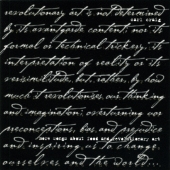 revolutionary art is not determined
carl craig
by its avantgarde content, nor its
formal or technical trickery, its
interpretation of reality or its
verisimilitude, but, rather, by how
much it revolutionizes our thinking
and imagination; overturning our
preconceptions, bias, and prejudice
more songs about food and revolutionary art
and inspiring us to change
ourselves and the world...